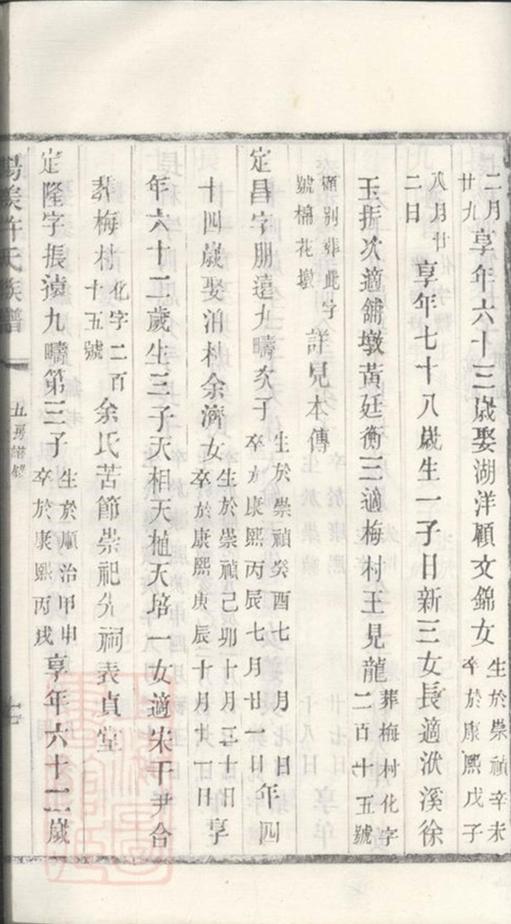 二月廿九享年六十三歲娶湖洋顧文錦女生於崇禎辛未卒於康熙戊子
八月廿二日享年七十八歲生一子日新三女長適洑溪徐
玉振次適舖墩黃廷衡三適梅村王見龍葬梅村化字二百十五號
顯別葬此字號棉花墩詳見本傳
定昌字朋遠九疇次子生於崇禎癸酉七月日卒於康熙丙辰七月廿一日年四
十四歲娶泊村余濟女生於崇禎己卯十月三十日卒於康熙庚辰十月廿一日享
年六十二歲生三子天相天植天培一女適宋干尹合
葬梅村化字二百十五號余氏苦節崇祀分祠表貞堂
定隆字振瀆九疇第三子生於順治甲申卒於康熙丙戌享年六十二歲
許氏族譜
五房譜錄